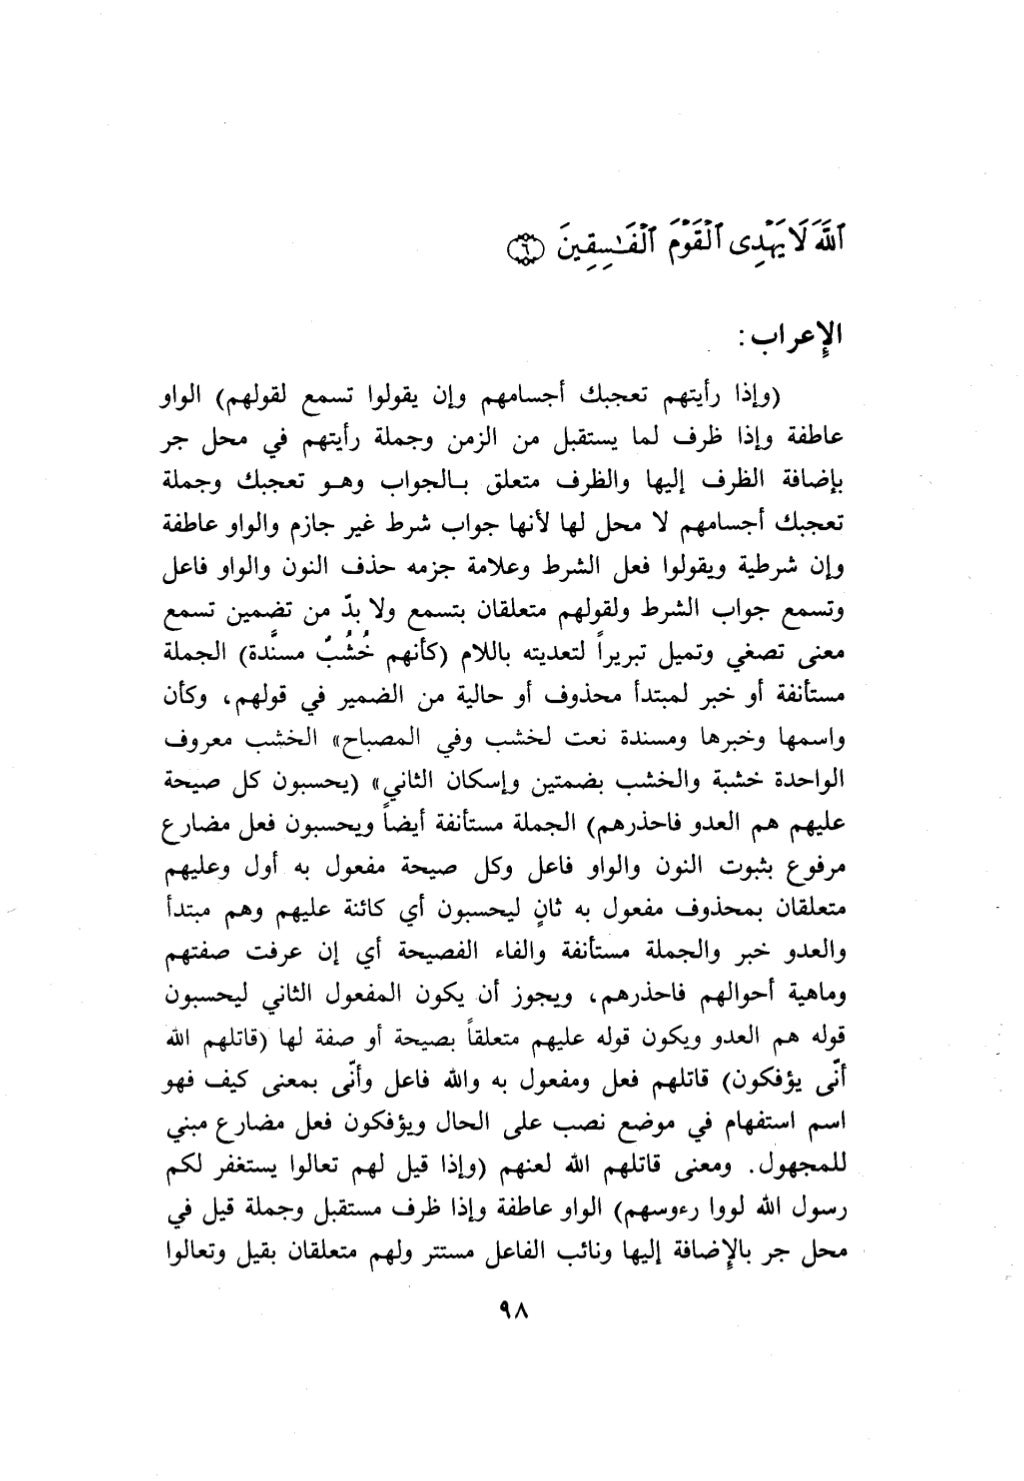 ٱللَّهَ لَا يَهْدِى ٱلْقَوْمَ ٱلْفَـٰسِقِينَ ٦
الإعراب :
(وإذا رأيتهم تعجبك أجسامهم وإن يقولوا تسمع لقولهم) الواو
عاطفة وإذا ظرف لما يستقبل من الزمن وجملة رأيتهم في محل جر
بإضافة الظرف إليها والظرف متعلق بـالجواب وهـو تعجبك وجملة
تعجبك أجسامهم لا محل لها لأنها جواب شرط غير جازم والواو عاطفة
وإن شرطية ويقولوا فعل الشرط وعلامة جزمه حذف النون والواو فاعل
وتسمع جواب الشرط ولقولهم متعلقان بتسمع ولا بدّ من تضمين تسمع
معنى تصغي وتميل تبريراً لتعديته باللام (كأنهم خُشُبٌ مسنَّدة) الجملة
مستأنفة أو خبر لمبتدأ محذوف أو حالية من الضمير في قولهم، وكأن
واسمها وخبرها ومسندة نعت لخشب وفي المصباح» الخشب معروف
الواحدة خشبة والخشب بضمتين وإسكان الثاني» (يحسبون كل صيحة
عليهم هم العدو فاحذرهم) الجملة مستأنفة أيضاً ويحسبون فعل مضارع
مرفوع بثبوت النون والواو فاعل وكل صيحة مفعول به أول وعليهم
متعلقان بمحذوف مفعول به ثانٍ ليحسبون أي كائنة عليهم وهم مبتدأ
والعدو خبر والجملة مستأنفة والفاء الفصيحة أي إن عرفت صفتهم
وماهية أحوالهم فاحذرهم، ويجوز أن يكون المفعول الثاني ليحسبون
قوله هم العدو ويكون قوله عليهم متعلقاً بصيحة أو صفة لها (قاتلهم الله
أنّى يؤفكون) قاتلهم فعل ومفعول به والله فاعل وأنّى بمعنى كيف فهو
اسم استفهام في موضع نصب على الحال ويؤفكون فعل مضارع مبني
للمجهول. ومعنى قاتلهم الله لعنهم (وإذا قيل لهم تعالوا يستغفر لكم
رسول الله لووا رءوسهم) الواو عاطفة وإذا ظرف مستقبل وجملة قيل في
محل جر بالإضافة إليها ونائب الفاعل مستتر ولهم متعلقان بقيل وتعالوا
٩٨